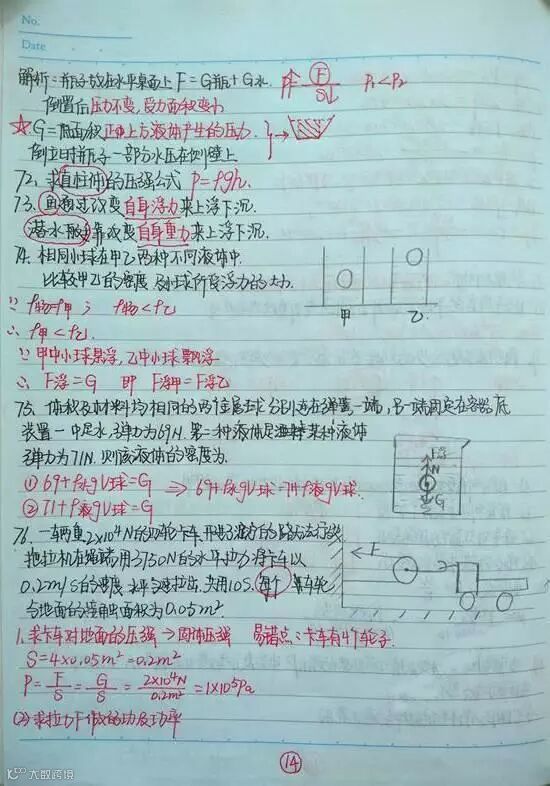 No.
Date
解析:瓶子放在水平桌面上 F=G瓶+G水. P↑ F S↓ P₁<P₂
倒置后压力不变,受力面积变小
☆G=底面积正上方液体产生的压力.
倒立时瓶子一部分水压在侧壁上
72、求直柱体的压强公式 P=ρgh.
73、鱼通过改变自身浮力来上浮下沉.
潜水艇靠改变自身重力来上浮下沉.
74、相同小球在甲乙两种不同液体中.
比较甲乙的密度及小球所受浮力的大小.
甲 乙
∵ρ物=ρ甲; ρ物<ρ乙
∴ρ甲<ρ乙
∵甲中小球悬浮,乙中小球飘浮
∴F浮=G 即 F浮甲=F浮乙
75、体积及材料均相同的两个金属球分别连在弹簧一端,另一端固定在容器底
装置一中是水,弹力为69N.第二种液体是某种液体
弹力为71N.则该液体的密度为.
F浮
N
G
①69+ρ水gV球=G ⇒ 69+ρ水gV球=71+ρ液gV球.
②71+ρ液gV球=G
76、一辆重2×10⁴N的四轮卡车
拖拉机在绳端用3750N的水平拉力F将卡车以
0.2m/s的速度,水平匀速拉出,共用10S.每个车轮
与地面的接触面积为0.05m²
F
1、求卡车对地面的压强→固体压强 易错点:卡车有4个轮子.
S=4×0.05m²=0.2m²
P=F/S=G/S=2×10⁴N/0.2m²=1×10⁵Pa
(2)求拉力F做的功及功率
14
大数跨境